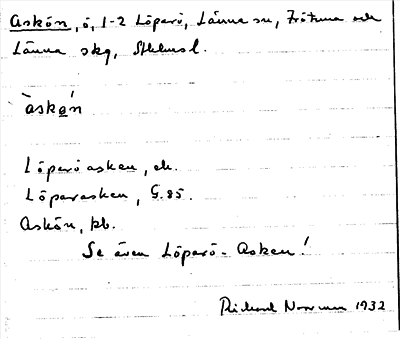 Askön, ö, 1-2 Löparö, Länna sn, Frötuna och
Länna skg, Sthlms l.
`askø´n
Löparöasken, ek.
Löparasken, G.85.
Askön, kb.
Se även Löparö-Asken!
Rickard Norrman 1932